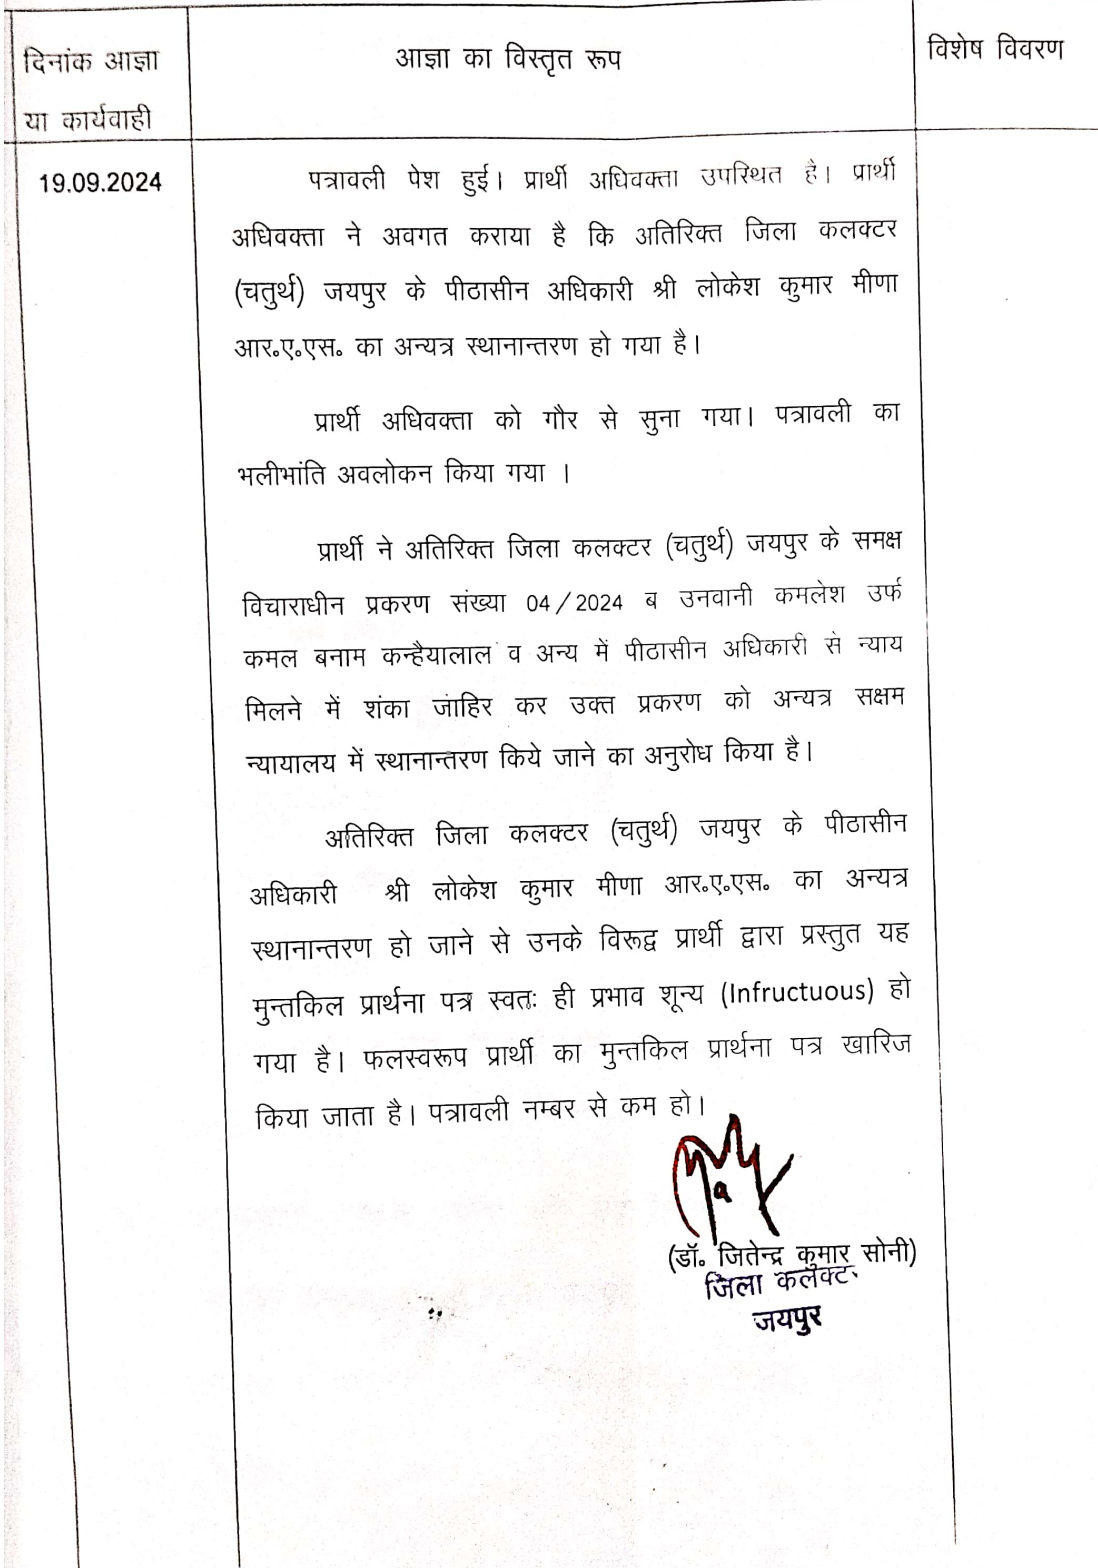 दिनांक आज्ञा
या कार्यवाही
आज्ञा का विस्तृत रूप
विशेष विवरण
19.09.2024
पत्रावली पेश हुई। प्रार्थी अधिवक्ता उपस्थित है। प्रार्थी
अधिवक्ता ने अवगत कराया है कि अतिरिक्त जिला कलक्टर
(चतुर्थ) जयपुर के पीठासीन अधिकारी श्री लोकेश कुमार मीणा
आर॰ए॰एस॰ का अन्यत्र स्थानान्तरण हो गया है।
प्रार्थी अधिवक्ता को गौर से सुना गया। पत्रावली का
भलीभांति अवलोकन किया गया ।
प्रार्थी ने अतिरिक्त जिला कलक्टर (चतुर्थ) जयपुर के समक्ष
विचाराधीन प्रकरण संख्या 04/2024 ब उनवानी कमलेश उर्फ
कमल बनाम कन्हैयालाल व अन्य में पीठासीन अधिकारी से न्याय
मिलने में शंका जाहिर कर उक्त प्रकरण को अन्यत्र सक्षम
न्यायालय में स्थानान्तरण किये जाने का अनुरोध किया है।
अतिरिक्त जिला कलक्टर (चतुर्थ) जयपुर के पीठासीन
अधिकारी श्री लोकेश कुमार मीणा आर॰ए॰एस॰ का अन्यत्र
स्थानान्तरण हो जाने से उनके विरूद्व प्रार्थी द्वारा प्रस्तुत यह
मुन्तकिल प्रार्थना पत्र स्वतः ही प्रभाव शून्य (Infructuous) हो
गया है। फलस्वरूप प्रार्थी का मुन्तकिल प्रार्थना पत्र खारिज
किया जाता है। पत्रावली नम्बर से कम हो।
(डॉ॰ जितेन्द्र कुमार सोनी)
जिला कलक्ट
जयपुर